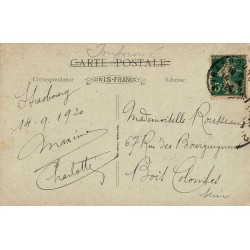 CARTE POSTALE
Correspondance
UNIS-FRANCE
Adresse
Strasbourg
14-9-1920
Maxime
Charlotte
Mademoiselle Rousseau
67 Rue des Bourguignons
Bois Colombes
Seine